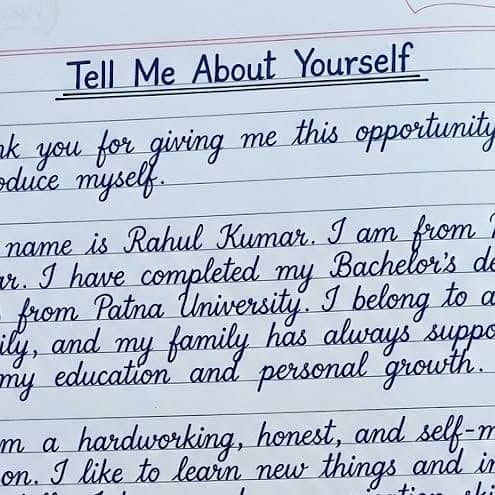 Tell Me About Yourself
you for giving me this opportunity
myself.
name is Rahul Kumar. I am from
I have completed my Bachelor's
from Patna University. I belong to a
and my family has always
my education and personal growth.
a hardworking, honest, and
I like to learn new things and